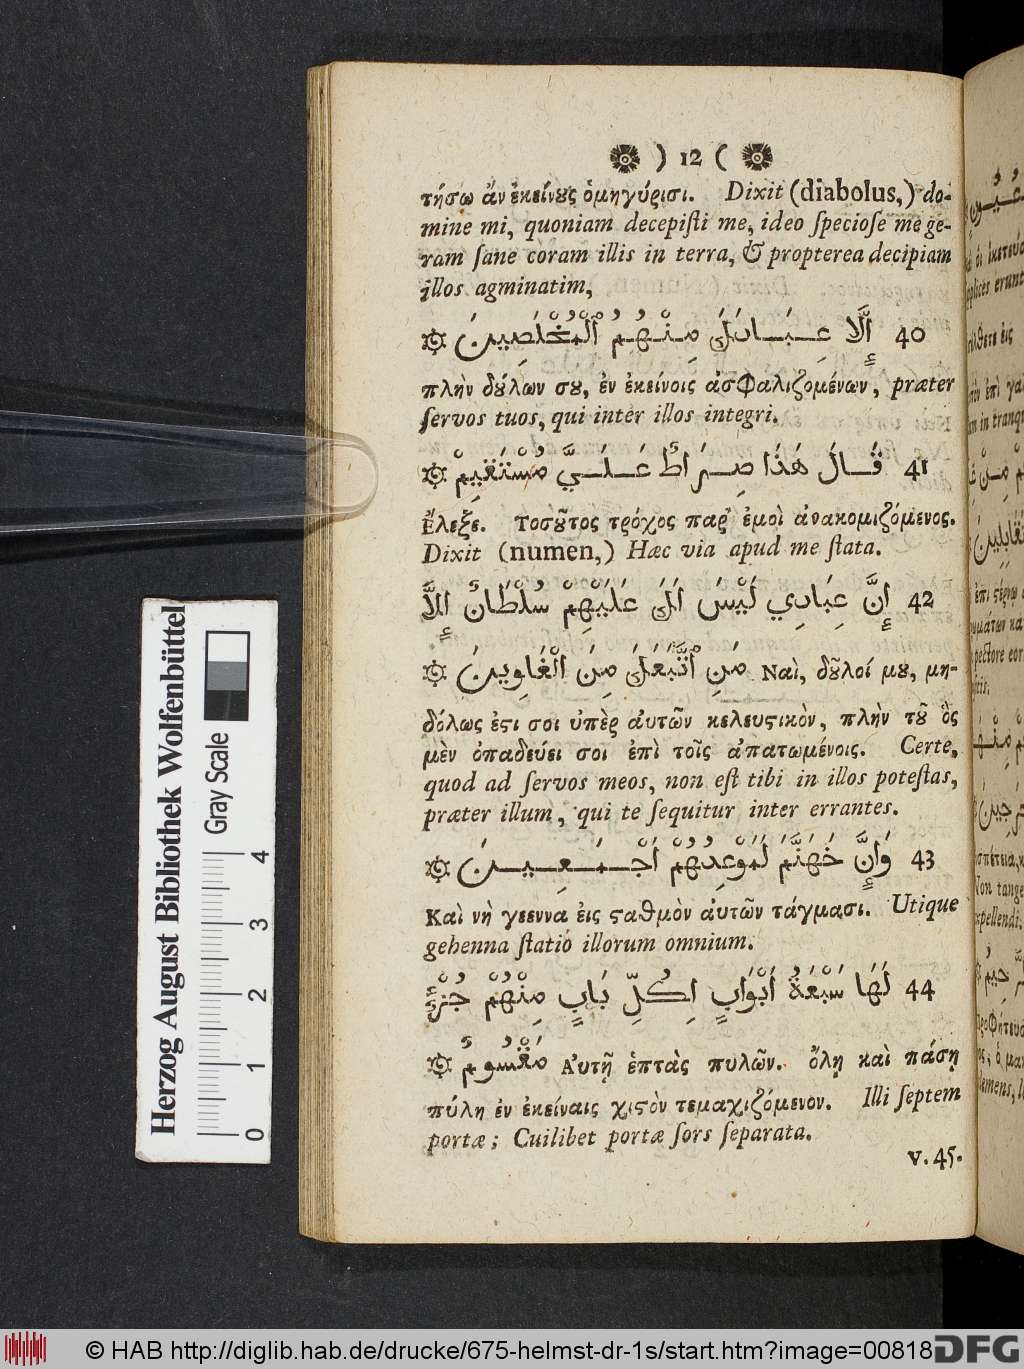 ) 12 (
τήσω ἂν ἐκείνȣς ὁμηγύρισι. Dixit (diabolus,) do-
mine mi, quoniam decepiſti me, ideo ſpecioſe me ge-
ram ſane coram illis in terra, & propterea decipiam
illos agminatim,
40 إِلَّا عِبَادَكَ مِنْهُمُ ٱلْمُخْلَصِينَ ۞
πλὴν δȣ́λων σȣ, ἐν ἐκείνοις ἀσφαλιζομένων, præter
ſervos tuos, qui inter illos integri.
41 قَالَ هَذَا صِرَاطٌ عَلَيَّ مُسْتَقِيمٌ ۞
Ἔλεξε. Τοσȣ͂τος τρόχος παρ' ἐμοὶ ἀνακομιζόμενος.
Dixit (numen,) Hæc via apud me ſtata.
42 إِنَّ عِبَادِي لَيْسَ لَكَ عَلَيْهِمْ سُلْطَانٌ إِلَّا
مَنِ ٱتَّبَعَكَ مِنَ ٱلْغَاوِينَ ۞ Ναὶ, δȣ͂λοί μȣ, μη-
δόλως ἐςι σοι ὑπὲρ ἀυτῶν κελευςικὸν, πλὴν τȣ͂ ὃς
μὲν ὀπαδεύει σοι ἐπὶ τοῖς ἀπατωμένοις. Certe,
quod ad ſervos meos, non eſt tibi in illos poteſtas,
præter illum, qui te ſequitur inter errantes.
43 وَإِنَّ جَهَنَّمَ لَمَوْعِدُهُمْ أَجْمَعِينَ ۞
Καὶ νὴ γεεννα ἐις ςαθμὸν ἀυτῶν τάγμασι. Utique
gehenna ſtatio illorum omnium.
44 لَهَا سَبْعَةُ أَبْوَابٍ لِكُلِّ بَابٍ مِنْهُمْ جُزْءٌ
مَقْسُومٌ ۞ Ἀυτῇ ἑπτὰς πυλῶν. ὅλῃ καὶ πάσῃ
πύλῃ ἐν ἐκείναις χιςὸν τεμαχιζόμενον. Illi ſeptem
portæ; Cuilibet portæ ſors ſeparata.
v. 45.
Herzog August Bibliothek Wolfenbüttel
Gray Scale
0 1 2 3 4
© HAB http://diglib.hab.de/drucke/675-helmst-dr-1s/start.htm?image=00818
DFG